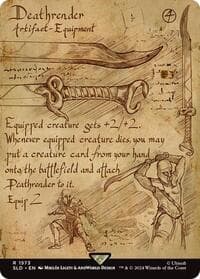 Deathrender
4
Artifact - Equipment
Equipped creature gets +2/+2.
Whenever equipped creature dies, you may
put a creature card from your hand
onto the battlefield and attach
Deathrender to it.
Equip 2
R 1973
SLD • EN
™ & © 2024 Wizards of the Coast
© Ubisoft